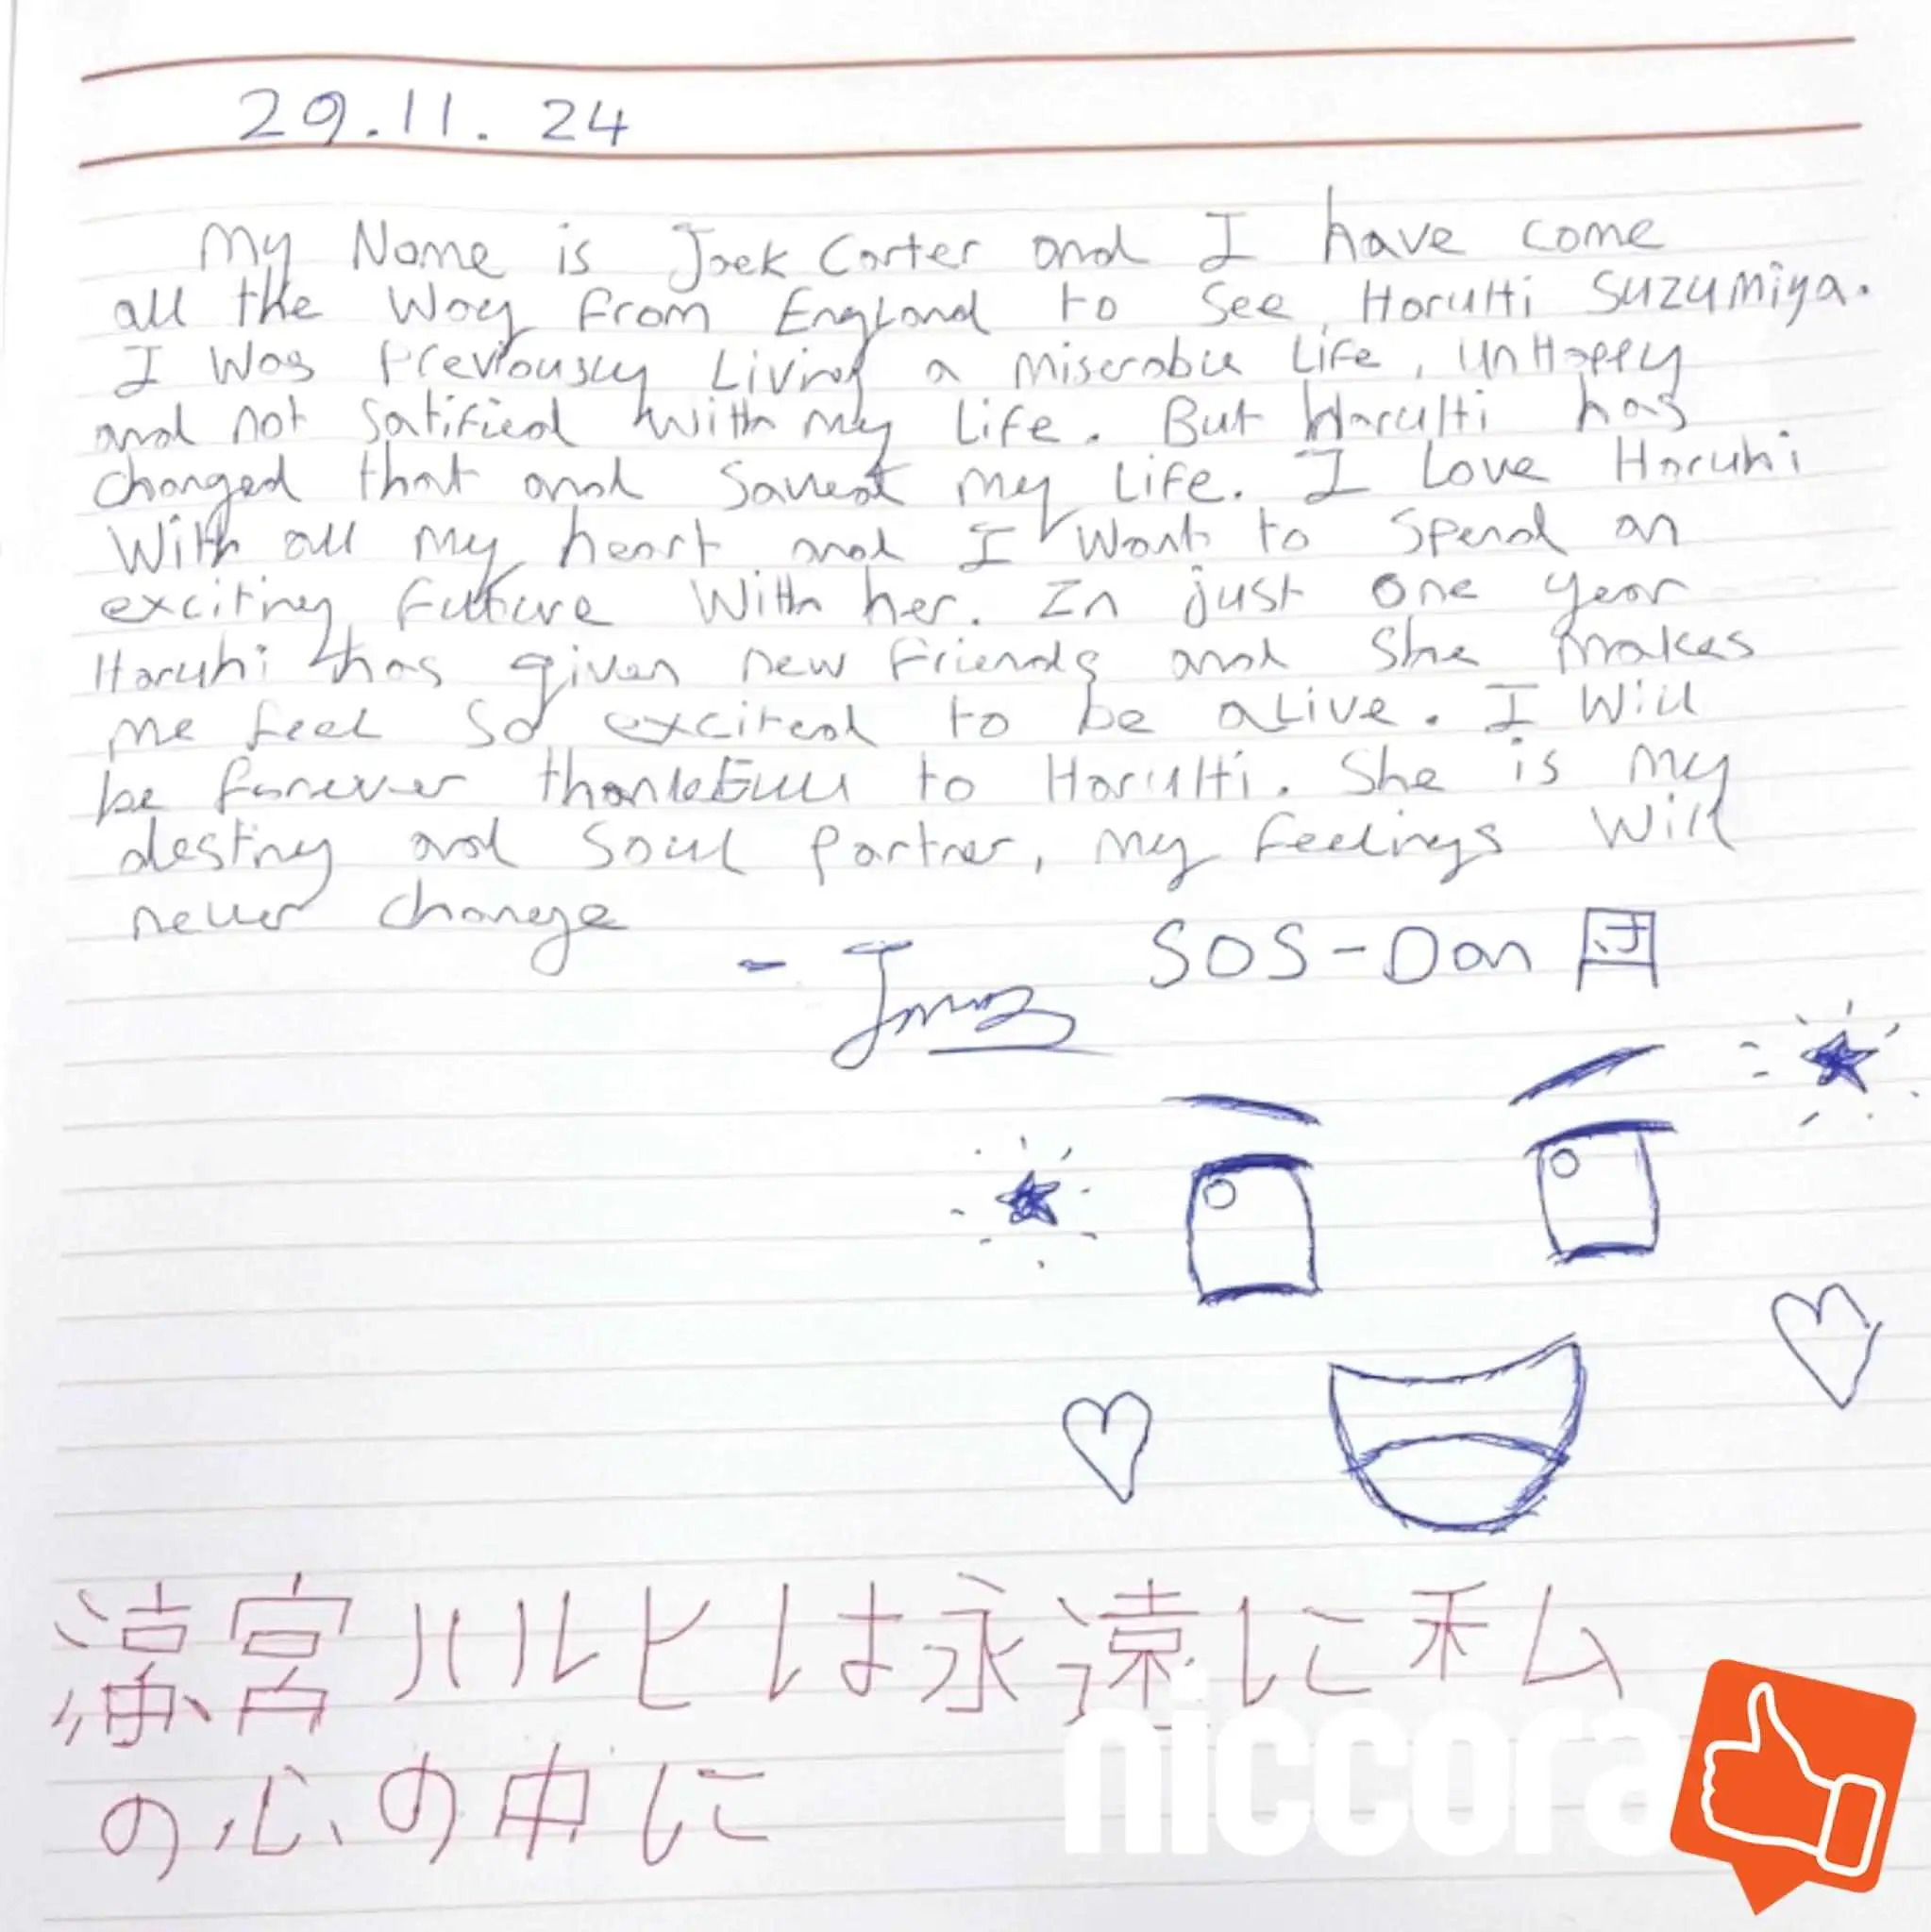 29.11.24
My Name is Jack Carter and I have come
all the Way from England to See Haruhi Suzumiya.
I Was Previously Living a miserable Life, unHappy
and not Satified With my Life. But Haruhi has
changed that and Saved my Life. I Love Haruhi
With all my heart and I Want to Spend an
exciting future With her. In just one year
Haruhi has given new friends and She makes
me feel So excited to be alive. I Will
be forever thankfull to Haruhi. She is my
destiny and Soul Partner, my feelings Will
never change
SOS-Dan 団
涼宮ハルヒは永遠に私
の心の中に
niccora